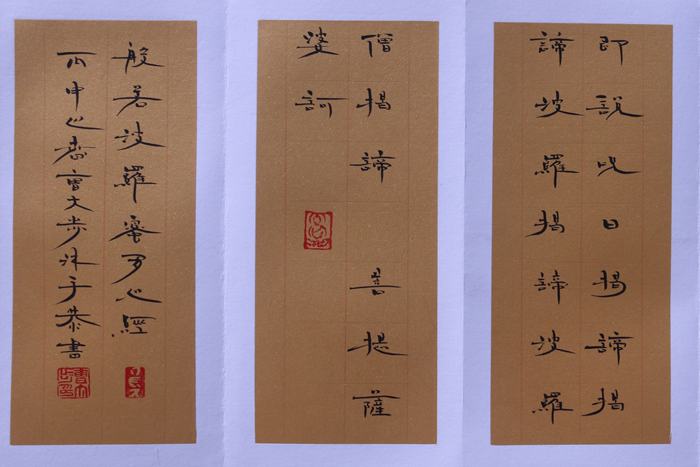 即說呪曰揭諦揭
諦波羅揭諦波羅
僧揭諦 菩提薩
婆訶
般若波羅蜜多心經
丙申之春步沐手恭書